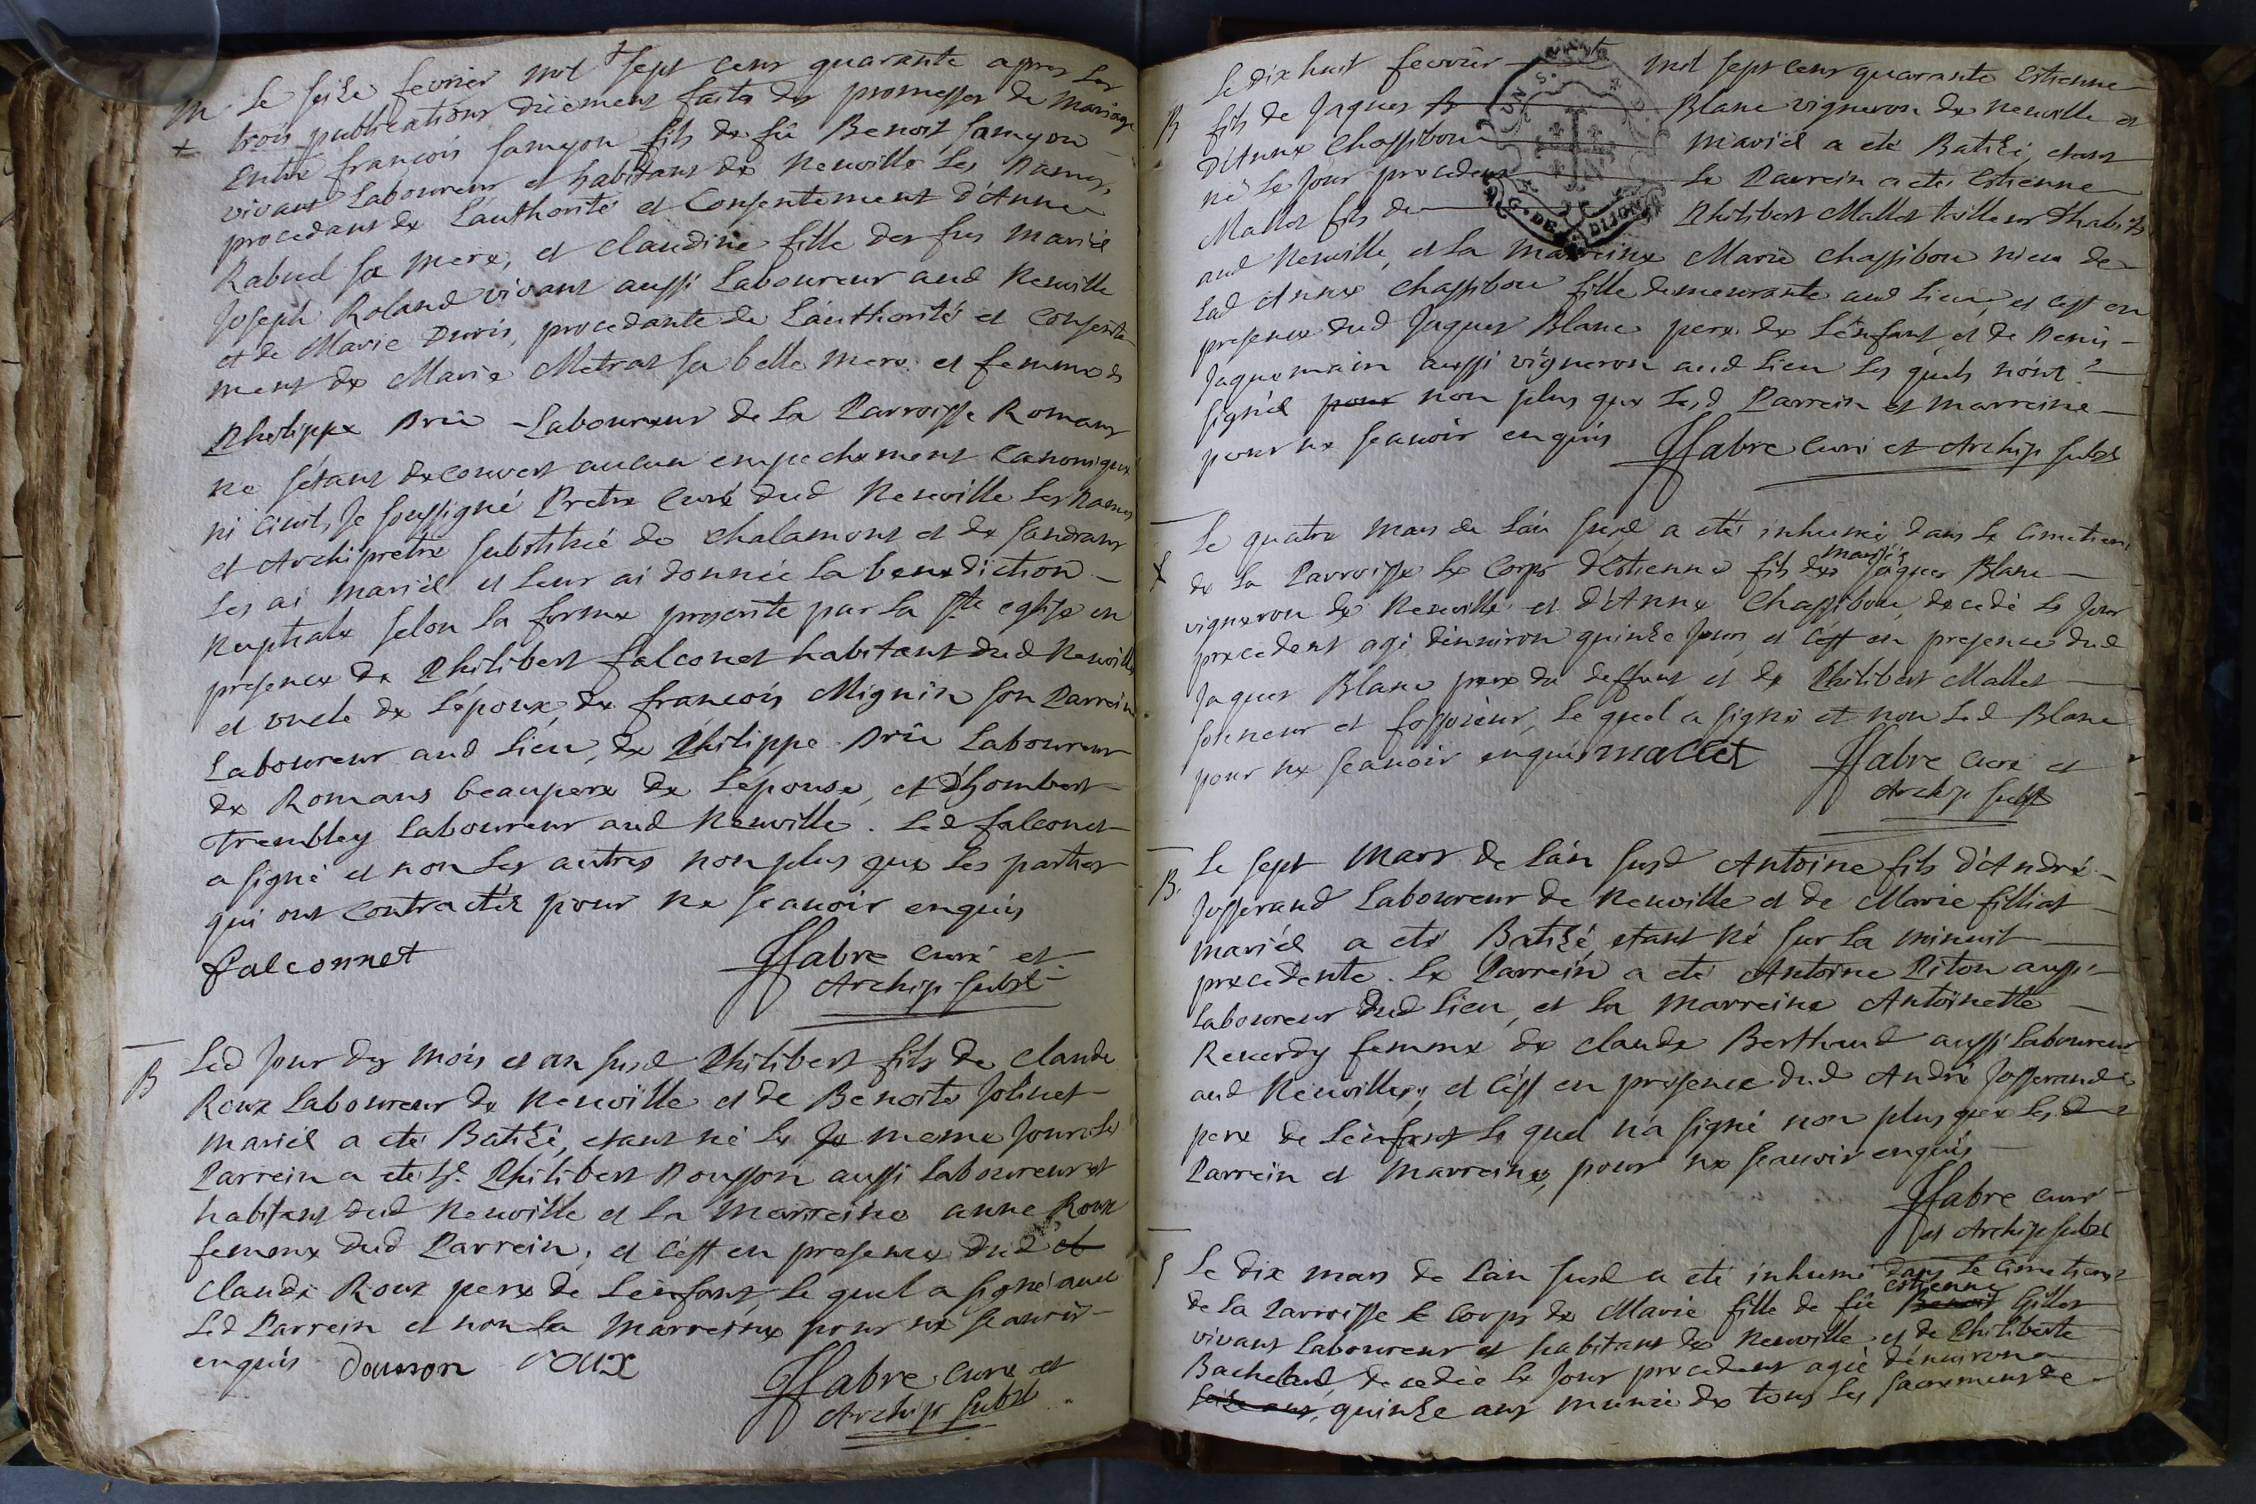 M. Le seize fevrier mil sept cens quarante apres les
+ trois publications duëment faites des promesses de mariage
Entre francois samyon fils de fû Benoit samyon
vivant Laboureur et habitant de Neuville Les Dames,
procedant de L'authorité et Consentement d'Anne
Rabuel sa mere, et claudine fille des fus mariés
Joseph Roland vivant aussi Laboureur aud Neuville
et de Marie Duris, procedante de L'authorité et Consente-
ment de Marie Metrat sa belle mere et femme de
Philippe Drû Laboureur de la Parroisse Romans
ne sétant decouvert aucun empechement Canonique
ni civil, Je soussigné Pretre Curé dud Neuville Les Dames
et Archipretre substitué de Chalamont et de Sandrans
Les ai mariés et Leur ai donnée La benediction
Nuptiale selon la forme prescrite par La Ste eglise en
presence de Philibert falconet habitant dud Neuville
et oncle de L'époux, de francois Mignin son Parrein
Laboureur aud Lieu, de Philippe Drû Laboureur
de Romans beaupere de Lépouse, et d'hombert
Trembley Laboureur aud Neuville. Led falconet
a signé et non Les autres non plus que Les parties
qui ont contractés pour ne scauoir enquis
falconnet
ffabre curé et
Archip. subst.
B Led Jour des mois et an susd Philibert fils de Claude
Roux Laboureur de Neuville et de Benoite Jolinet
mariés a eté Batizé, etant né Le Je meme Jour. Le
Parrein a eté Sr. Philibert Dousson aussi Laboureur et
habitant dud Neuville et La Marreine anne Roux
femme dud Parrein, et c'est en presence dud et
Claude Roux pere de L'enfant, Le quel a signé avec
Led Parrein et non La Marreine pour ne scauoir
enquis Dousson roux
ffabre Curé et
Archip subst
Le dix huit fevrier mil sept cens quarante Estienne
B fils de Jaques B Blanc vigneron de Neuville et
d'Anne Chassibou mariés a eté Batizé, etant
né Le Jour precedent Le Parrein a eté Estienne
Mallet fils de Philibert Mallet tailleur d'habits
aud Neuville, et La Marreine Marie Chassibou niece de
Lad Anne Chassibou fille demeurante aud Lieu, et c'est en
presence dud Jaques Blanc pere de L'enfant et de Denis
Jaquemain aussi vigneron aud Lieu Les quels n'ont
signés pour non plus que Lesd Parrein et marreine
pour ne scauoir enquis ffabre curé et Archip subst
S Le quatre Mars de L'an susd a eté inhumé dans Le Cimetiere
mariés
de La Parroisse Le Corps d'Estienne fils des Jaques Blanc
vigneron de Neuville et d'Anne Chassibou, decedé Le Jour
precedent agé d'enuiron quinze Jours et c'est en presence dud
Jaques Blanc pere du deffunt et de Philibert Mallet
soneur et fossoieur, Le quel a signé et non Led Blanc
pour ne scauoir enquis mallet ffabre Curé et
Archip subst
B. Le sept Mars de L'an susd Antoine fils d'André
Josserand Laboureur de Neuville et de Marie filliat
mariés a eté Batizé, etant né sur La minuit
precedente. Le Parrein a eté Antoine Piton aussi
Laboureur dud Lieu, et La Marreine Antoinette
Reverdy femme de Claude Berthaud aussi Laboureur
aud Neuville, et c'est en presence dud André Josserand
pere de L'enfant Le quel n'a signé non plus que Lesd
Parrein et Marreine, pour ne scauoir enquis
ffabre curé
et Archip subst
S Le dix mars de L'an susd a eté inhumé dans Le Cimetiere
estienne
de La Parroisse Le Corps de Marie fille de fû Benoit Gillet
vivant Laboureur et habitant de Neuville et de Philiberte
Bachelard, decedée Le Jour precedent agée d'enuiron
seize ans, quinze ans munie de tous Les sacremens de